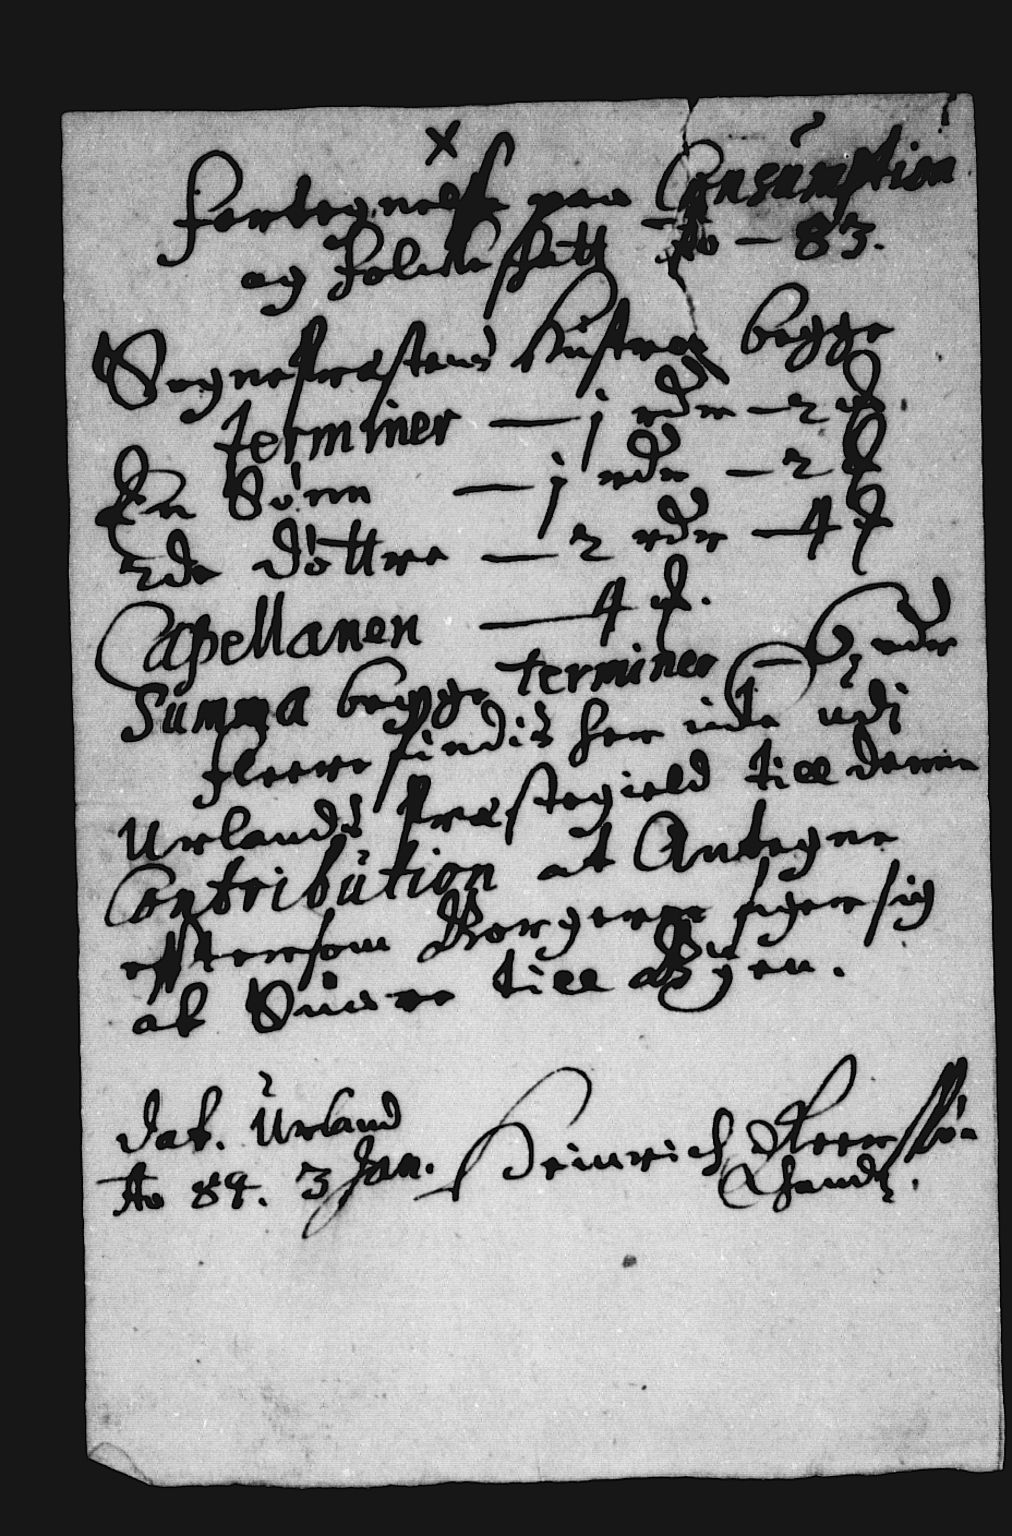 x
Fortegnelse paa Consumption
og Folcke skatt Ao - 83.
Sognepræstens Hustrue begge
terminer — j rdr - 2 ₰
En Sönn — j rdr - 2 ₰
2de Döttre — 2 rdr - 4 ₰
Capellanen — 4 ₰.
Summa begge terminer — 6 rdr
fleere findis her icke udi
Urlands Præstegield till denne
Contribution at Antegne
efftersom Borgerne siger sig
at Suare till Bÿen.
Dat. Urland
Ao 84. 3 Jan. Heinrich
Hand.